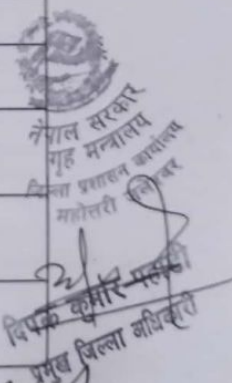 नेपाल सरकार
गृह मन्त्रालय
जिल्ला प्रशासन कार्यालय
महोत्तरी जलेश्वर
दिपक कुमार पहाडी
प्रमुख जिल्ला अधिकारी